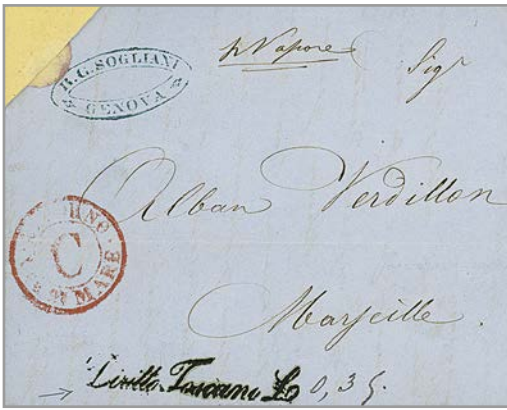 R. G. SOGLIANI
GENOVA
p Vapore
Sigr
Alban Verdillon
Marseille.
C
MARE
Diritto Toscano L 0,35.